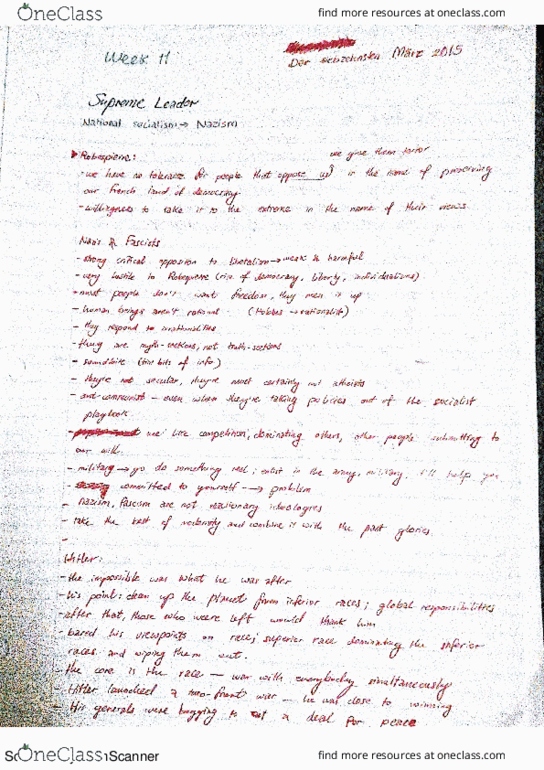 OneClass find more resources at oneclass.com
Week 11
März 2015
Supreme Leader
National socialism → Nazism
we give them terror
Robespierre:
- we have no tolerance for people that oppose us in the name of preserving
our French land of democracy.
- willingness to take it to the extreme in the name of their views
Nazis & Fascists
- strong critical opposition to liberalism → weak & harmful
- very hostile to Robespierre (rise of democracy, liberty, individualism)
- most people don't want freedom, they mess it up
- human beings aren't rational (Hobbes → rationalist)
- they respond to irrationalities
- they are myth-seekers, not truth-seekers
- soundbite (tiny bits of info)
- they're not secular, they're most certainly not atheists
- anti-communist - even when they're taking policies out of the socialist
playbook
- we: like competition, dominating others, other people submitting to
our will.
- military → go do something real; enlist in the army, military, it'll help you
- committed to yourself → problem
- Nazism, Fascism are not reactionary ideologies
- take the best of modernity and combine it with the past glories
-
Hitler:
- the impossible was what he was after
- his point: clean up the planet from inferior races; global responsibilities
- after that, those who were left would thank him
- based his viewpoints on race; superior race dominating the inferior
races and wiping them out.
- the core is the race — war with everybody simultaneously
- Hitler launched a two-front war — he was close to winning
- His generals were begging to cut a deal for peace
OneClass Scanner find more resources at oneclass.com